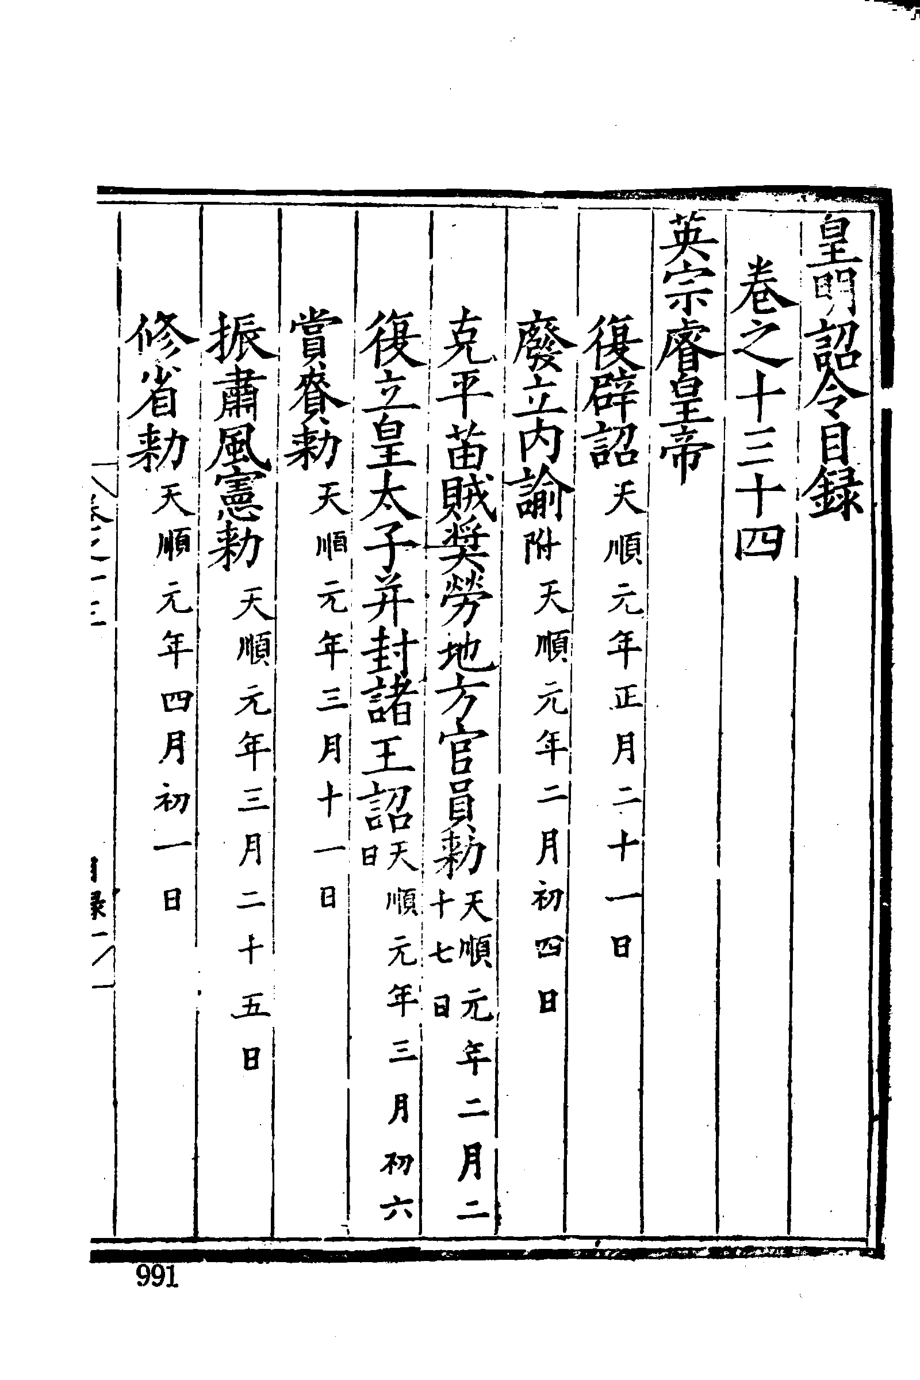 皇明詔令目録
卷之十三十四
英宗睿皇帝
復辟詔天順元年正月二十一日
廢立内諭附天順元年二月初四日
克平苗賊奬勞地方官員勑天順元年二月二十七日
復立皇太子并封諸王詔天順元年三月初六日
賞賚勑天順元年三月十一日
振肅風憲勑天順元年三月二十五日
修省勑天順元年四月初一日
991